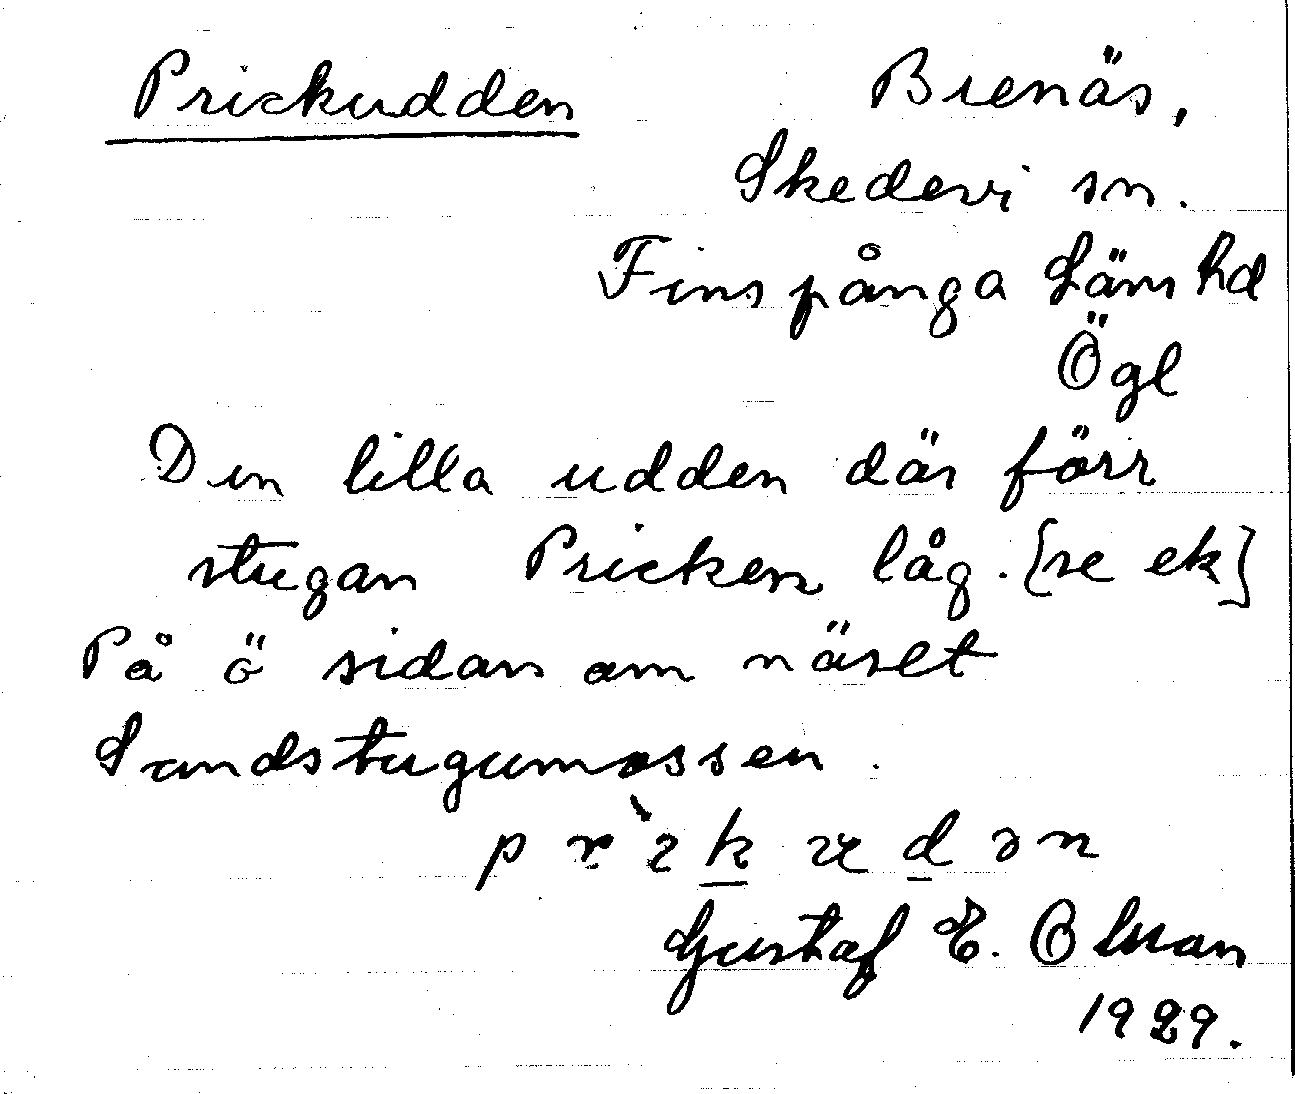 Prickudden Brenäs,
Skedevi sn.
Finspånga Läns hd
Ögl
Den lilla udden där förr
stugan Pricken låg. [se ek]
På ö sidan om näset
Sandstugumossen.
prìkudən
Gustaf E. Olman
1929.